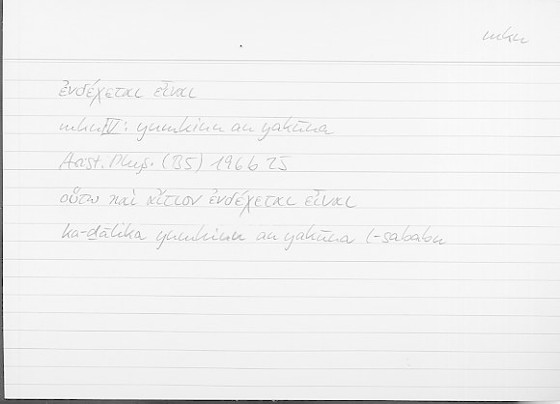 mkn
ἐνδέχεται εἶναι
mkn IV: yumkinu an yakūna
Arist. Phys. (B5) 196b25
οὕτω καὶ αἴτιον ἐνδέχεται εἶναι
ka-ḏālika yumkinu an yakūna l-sababu